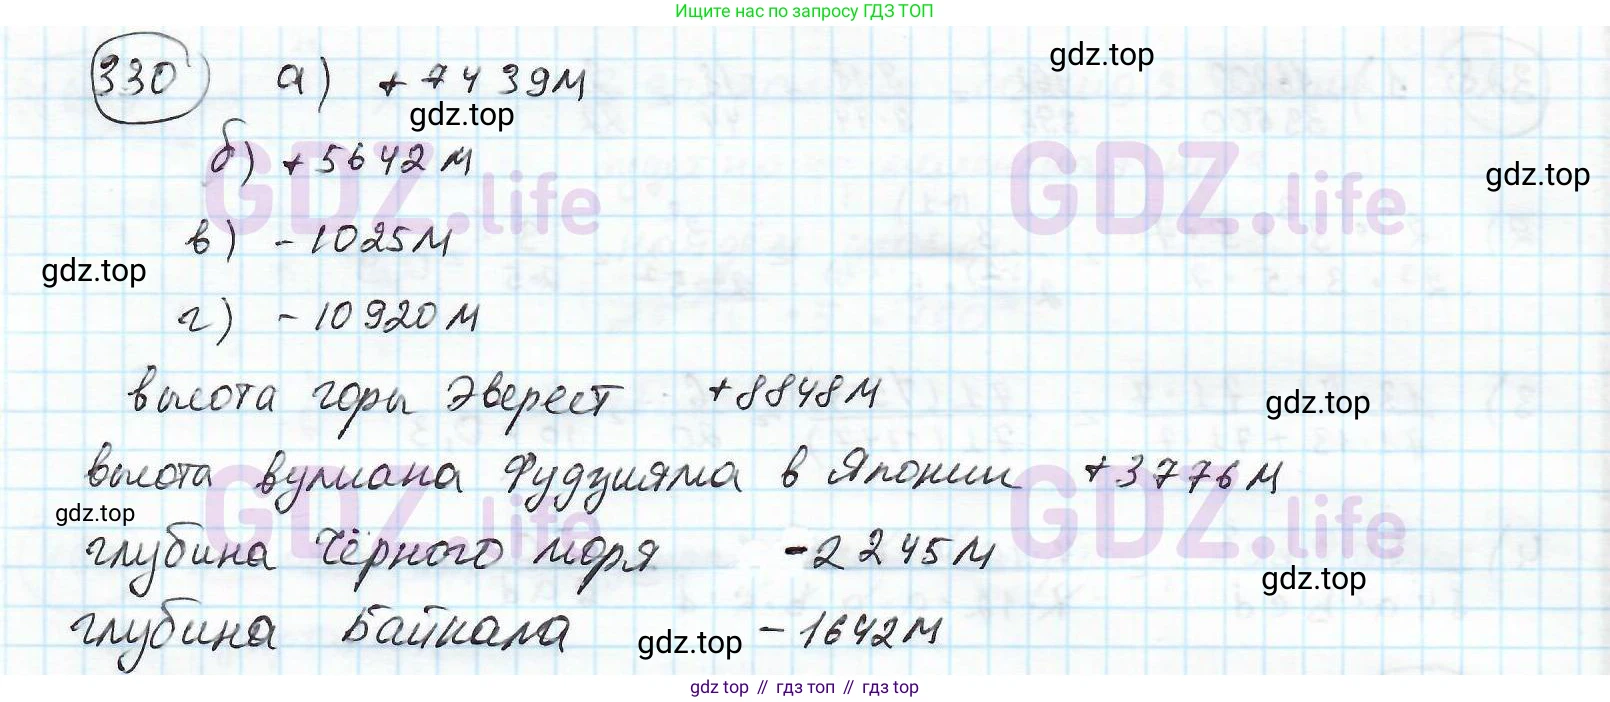 Ищите нас по запросу ГДЗ ТОП
330 а) +7439м
gdz.top
gdz.top
б) +5642м
GDZ.life
GDZ.life
gdz.top
в) -1025м
gdz.top
г) -10920м
высота горы Эверест +8848м
gdz.top
высота вулкана Фудзияма в Японии +3776м
GDZ.life
GDZ.life
gdz.top
глубина Чёрного моря -2245м
gdz.top
глубина Байкала -1642м
gdz.top
gdz top // гдз топ // гдз top